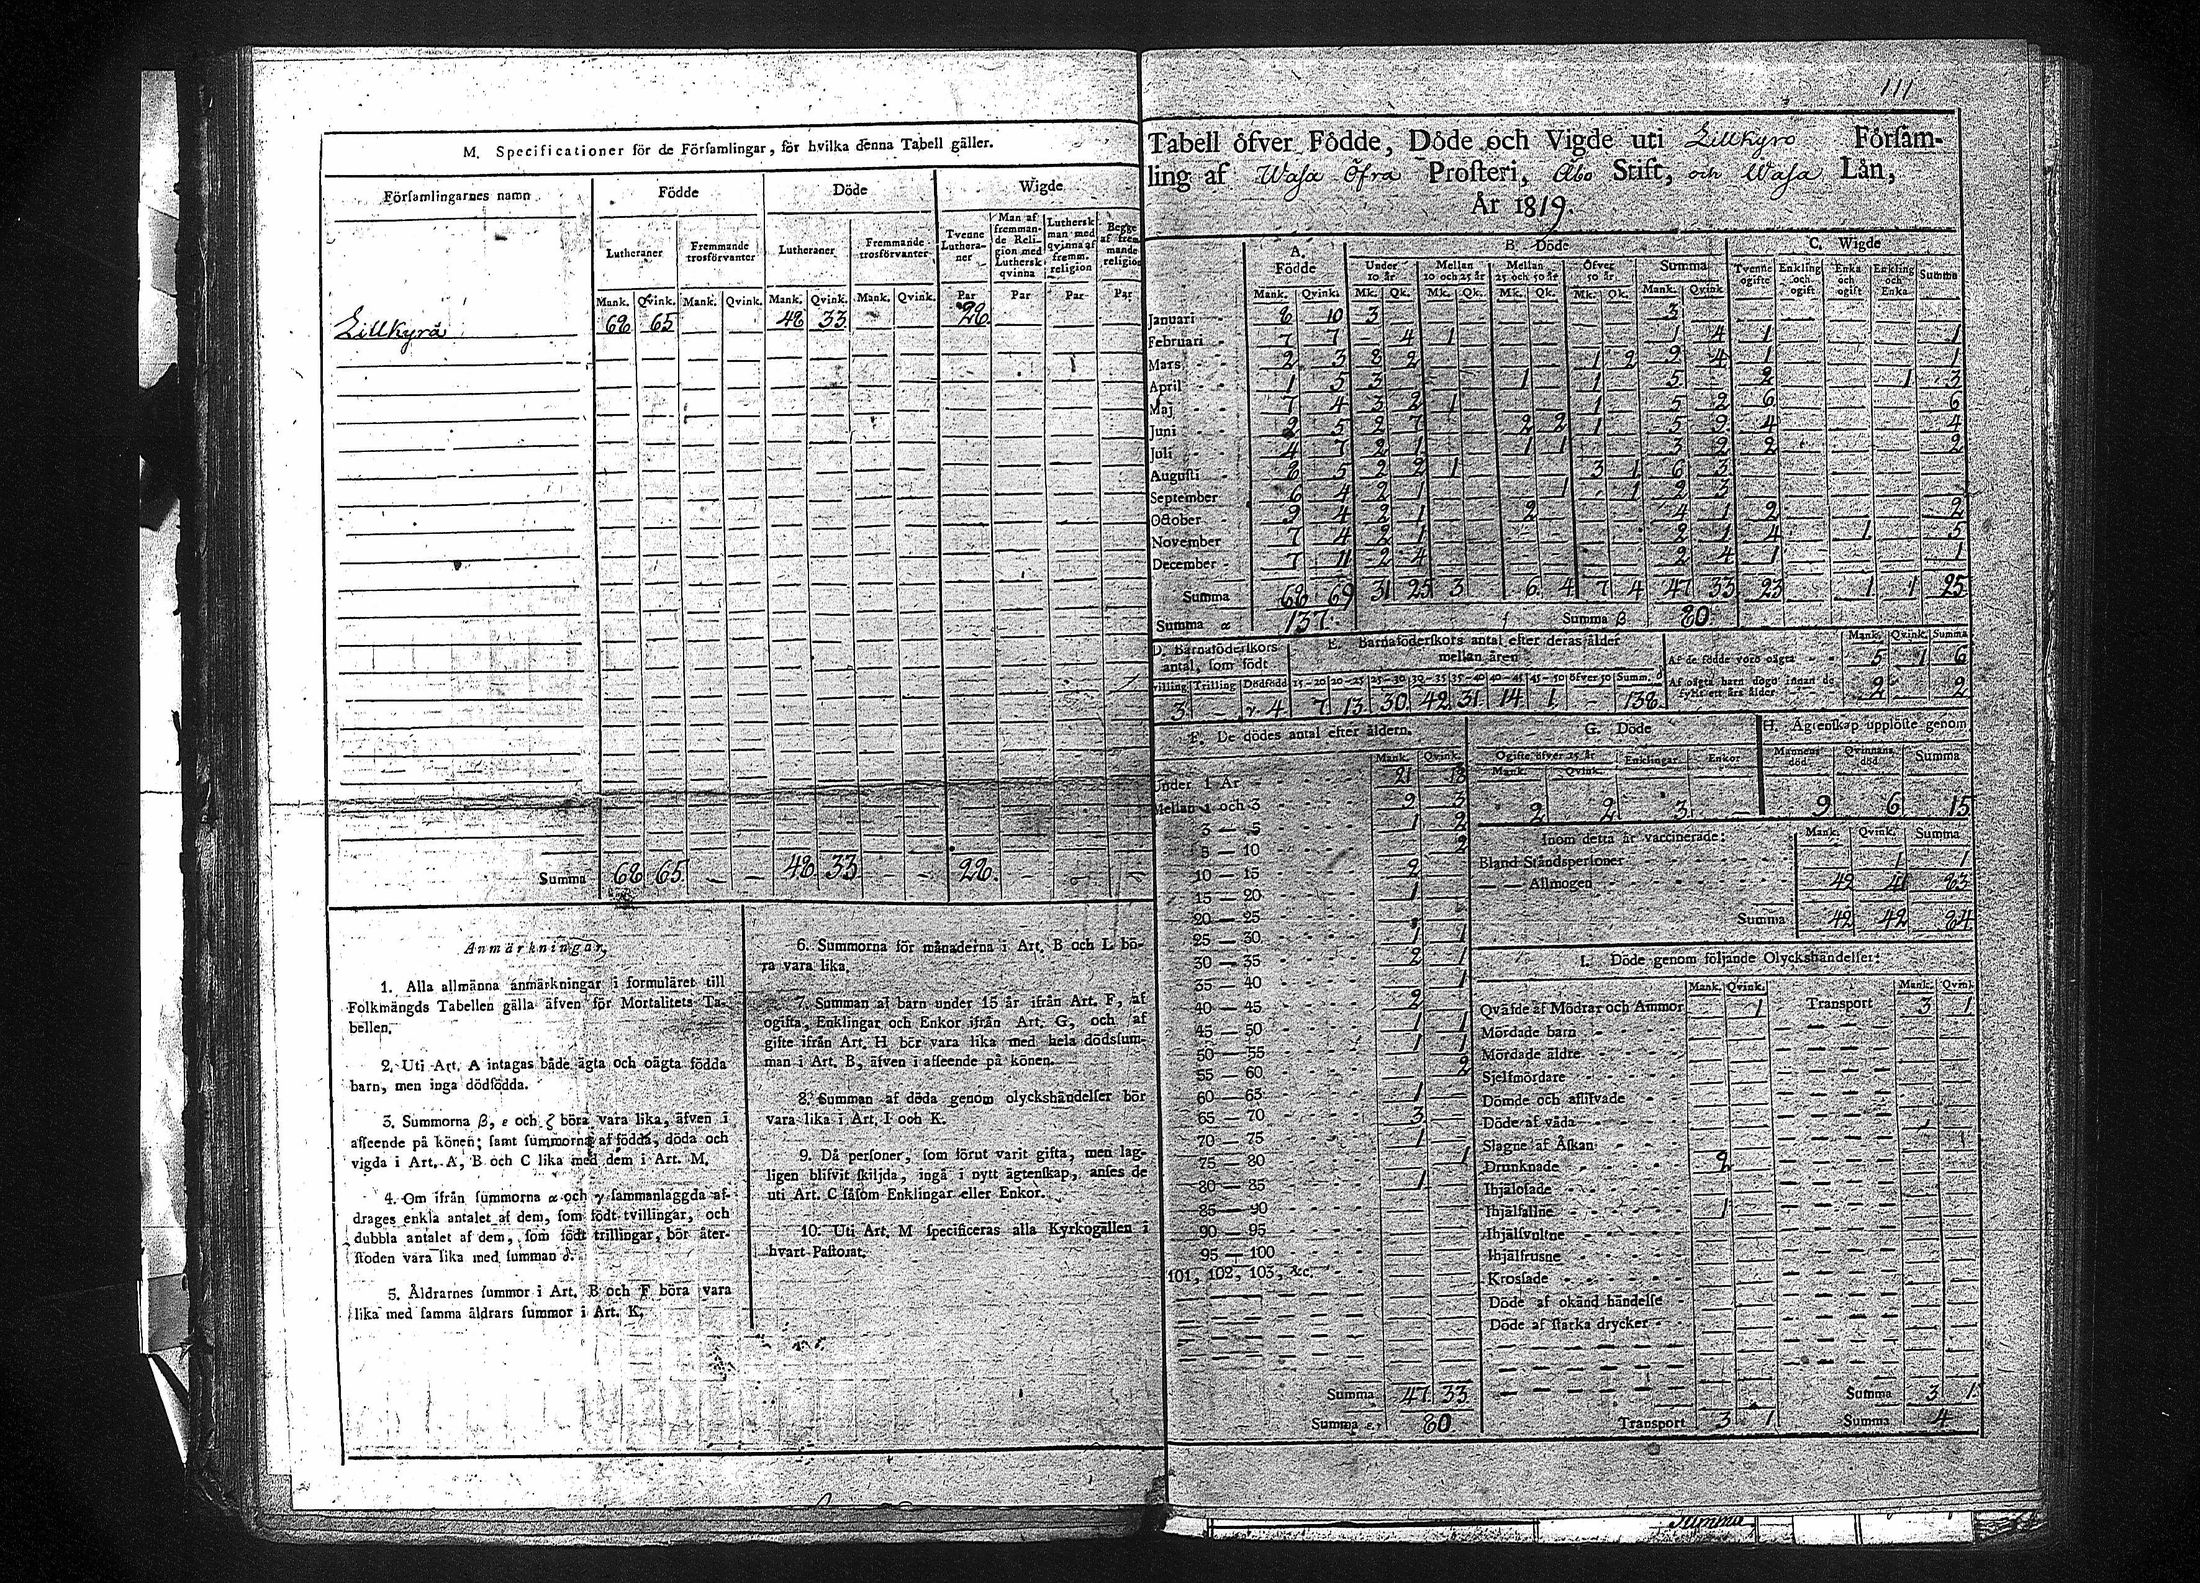 M. Specificationer för de Församlingar, för hvilka denna Tabell gäller.
Församlingarnes namn Födde Döde Wigde
Lutheraner Fremmande trosförvanter Lutheraner Fremmande trosförvanter Tvenne Lutheraner Man af fremmande Religion med Luthersk qvinna Luthersk man med qvinna af fremm. religion Begge af fremmande religion
Mank. Qvink. Mank. Qvink. Mank. Qvink. Mank. Qvink. Par Par Par Par
Lillkyrå 68 65 48 33 28
Summa 68 65 — — 48 33 — — 28 — — —
Anmärkningar.
1. Alla allmänna anmärkningar i formuläret till
Folkmängds Tabellen gälla äfven för Mortalitets Ta-
bellen.
2. Uti Art. A intagas både ägta och oägta födda
barn, men inga dödfödda.
3. Summorna β, ε och ζ böra vara lika, äfven i
afseende på könen; samt summorna af födda, döda och
vigda i Art. A, B och C lika med dem i Art. M.
4. Om ifrån summorna α och γ sammanlaggda af-
drages enkla antalet af dem, som födt tvillingar, och
dubbla antalet af dem, som födt trillingar, bör åter-
stoden vara lika med summan δ.
5. Åldrarnes summor i Art. B och F böra vara
lika med samma åldrars summor i Art. K.
6. Summorna för månaderna i Art. B och L bö-
ra vara lika.
7. Summan af barn under 15 år ifrån Art. F, af
ogifta, Enklingar och Enkor ifrån Art. G, och af
gifte ifrån Art. H bör vara lika med hela dödssum-
man i Art. B, äfven i afseende på könen.
8. Summan af döda genom olyckshändelser bör
vara lika i Art. I och K.
9. Då personer, som förut varit gifta, men lag-
ligen blifvit skiljda, ingå i nytt ägtenskap, anses de
uti Art. C såsom Enklingar eller Enkor.
10. Uti Art. M specificeras alla Kyrkogällen i
hvart Pastorat.
111
Tabell öfver Födde, Döde och Vigde uti Lillkyro Församling
af Wasa Öfra Prosteri, Åbo Stift, och Wasa Län,
År 1819.
A. Födde B. Döde C. Wigde
Under 10 år Mellan 10 och 25 år Mellan 25 och 50 år Öfver 50 år Summa Tvenne ogifte Enkling och ogift Enka och ogift Enkling och Enka Summa
Mank. Qvink. Mk. Qk. Mk. Qk. Mk. Qk. Mk. Qk. Mank. Qvink
Januari 8 10 3 3
Februari 7 7 — 4 1 1 4 1 1
Mars 2 3 8 2 1 2 9 4 1 1
April 1 5 3 1 1 5 — 2 1 3
Maj 7 4 3 2 1 1 5 2 6 6
Juni 2 5 2 7 2 2 1 5 9 4 4
Juli 4 7 2 1 1 1 3 2 2 2
Augusti 8 5 2 2 1 3 1 6 3
September 6 4 2 1 1 1 2 3
October 9 4 2 1 2 4 1 2 2
November 7 4 2 1 2 1 4 1 5
December 7 11 2 4 2 4 1 1
Summa 68 69 31 25 3 6 4 7 4 47 33 23 1 1 25
Summa α 137. Summa β 80.
D. Barnaföderskors antal, som födt E. Barnaföderskors antal efter deras ålder mellan åren Mank. Qvink. Summa
Af de födde voro oägta 5 1 6
Tvilling Trilling Dödfödd 15—20 20—25 25—30 30—35 35—40 40—45 45—50 öfver 50 Summ. δ
Af oägta barn dogo innan de fyllt ett års ålder 2 2
3 — γ. 4 7 13 30 42 31 14 1 — 138.
F. De dödes antal efter åldern. G. Döde H. Ägtenskap upplöste genom
Mank. Qvink. Ogifte öfver 25 år Enklingar Enkor Mannens död Qvinnans död Summa
Mank. Qvink.
2 2 3 — 9 6 15
Under 1 År 21 18
Mellan 1 och 3 9 3
3 — 5 1 2
5 — 10 2
10 — 15 2
15 — 20 1
20 — 25
25 — 30 1 1
30 — 35 2 1
35 — 40 1
40 — 45 2
45 — 50 1 1
50 — 55 1 1
55 — 60 2
60 — 65 1
65 — 70 3
70 — 75 1
75 — 80 1
80 — 85 1
85 — 90
90 — 95
95 — 100
101, 102, 103, &c.
Summa 47 33
Summa ε 80
Inom detta år vaccinerade: Mank. Qvink. Summa
Bland Ståndspersoner 1 1
— — Allmogen 42 41 83
Summa 42 42 84
I. Döde genom följande Olyckshändelser:
Mank. Qvink. Mank. Qvin.
Qväfde af Mödrar och Ammor 1 Transport 3 1
Mördade barn
Mördade äldre
Sjelfmördare
Dömde och aflifvade
Döde af våda
Slagne af Åskan
Drunknade 2
Ihjälfallne 1
Ihjälfrusne
Krossade
Döde af okänd händelse
Döde af starka drycker
Summa 3 1
Transport 3 1 Summa 4